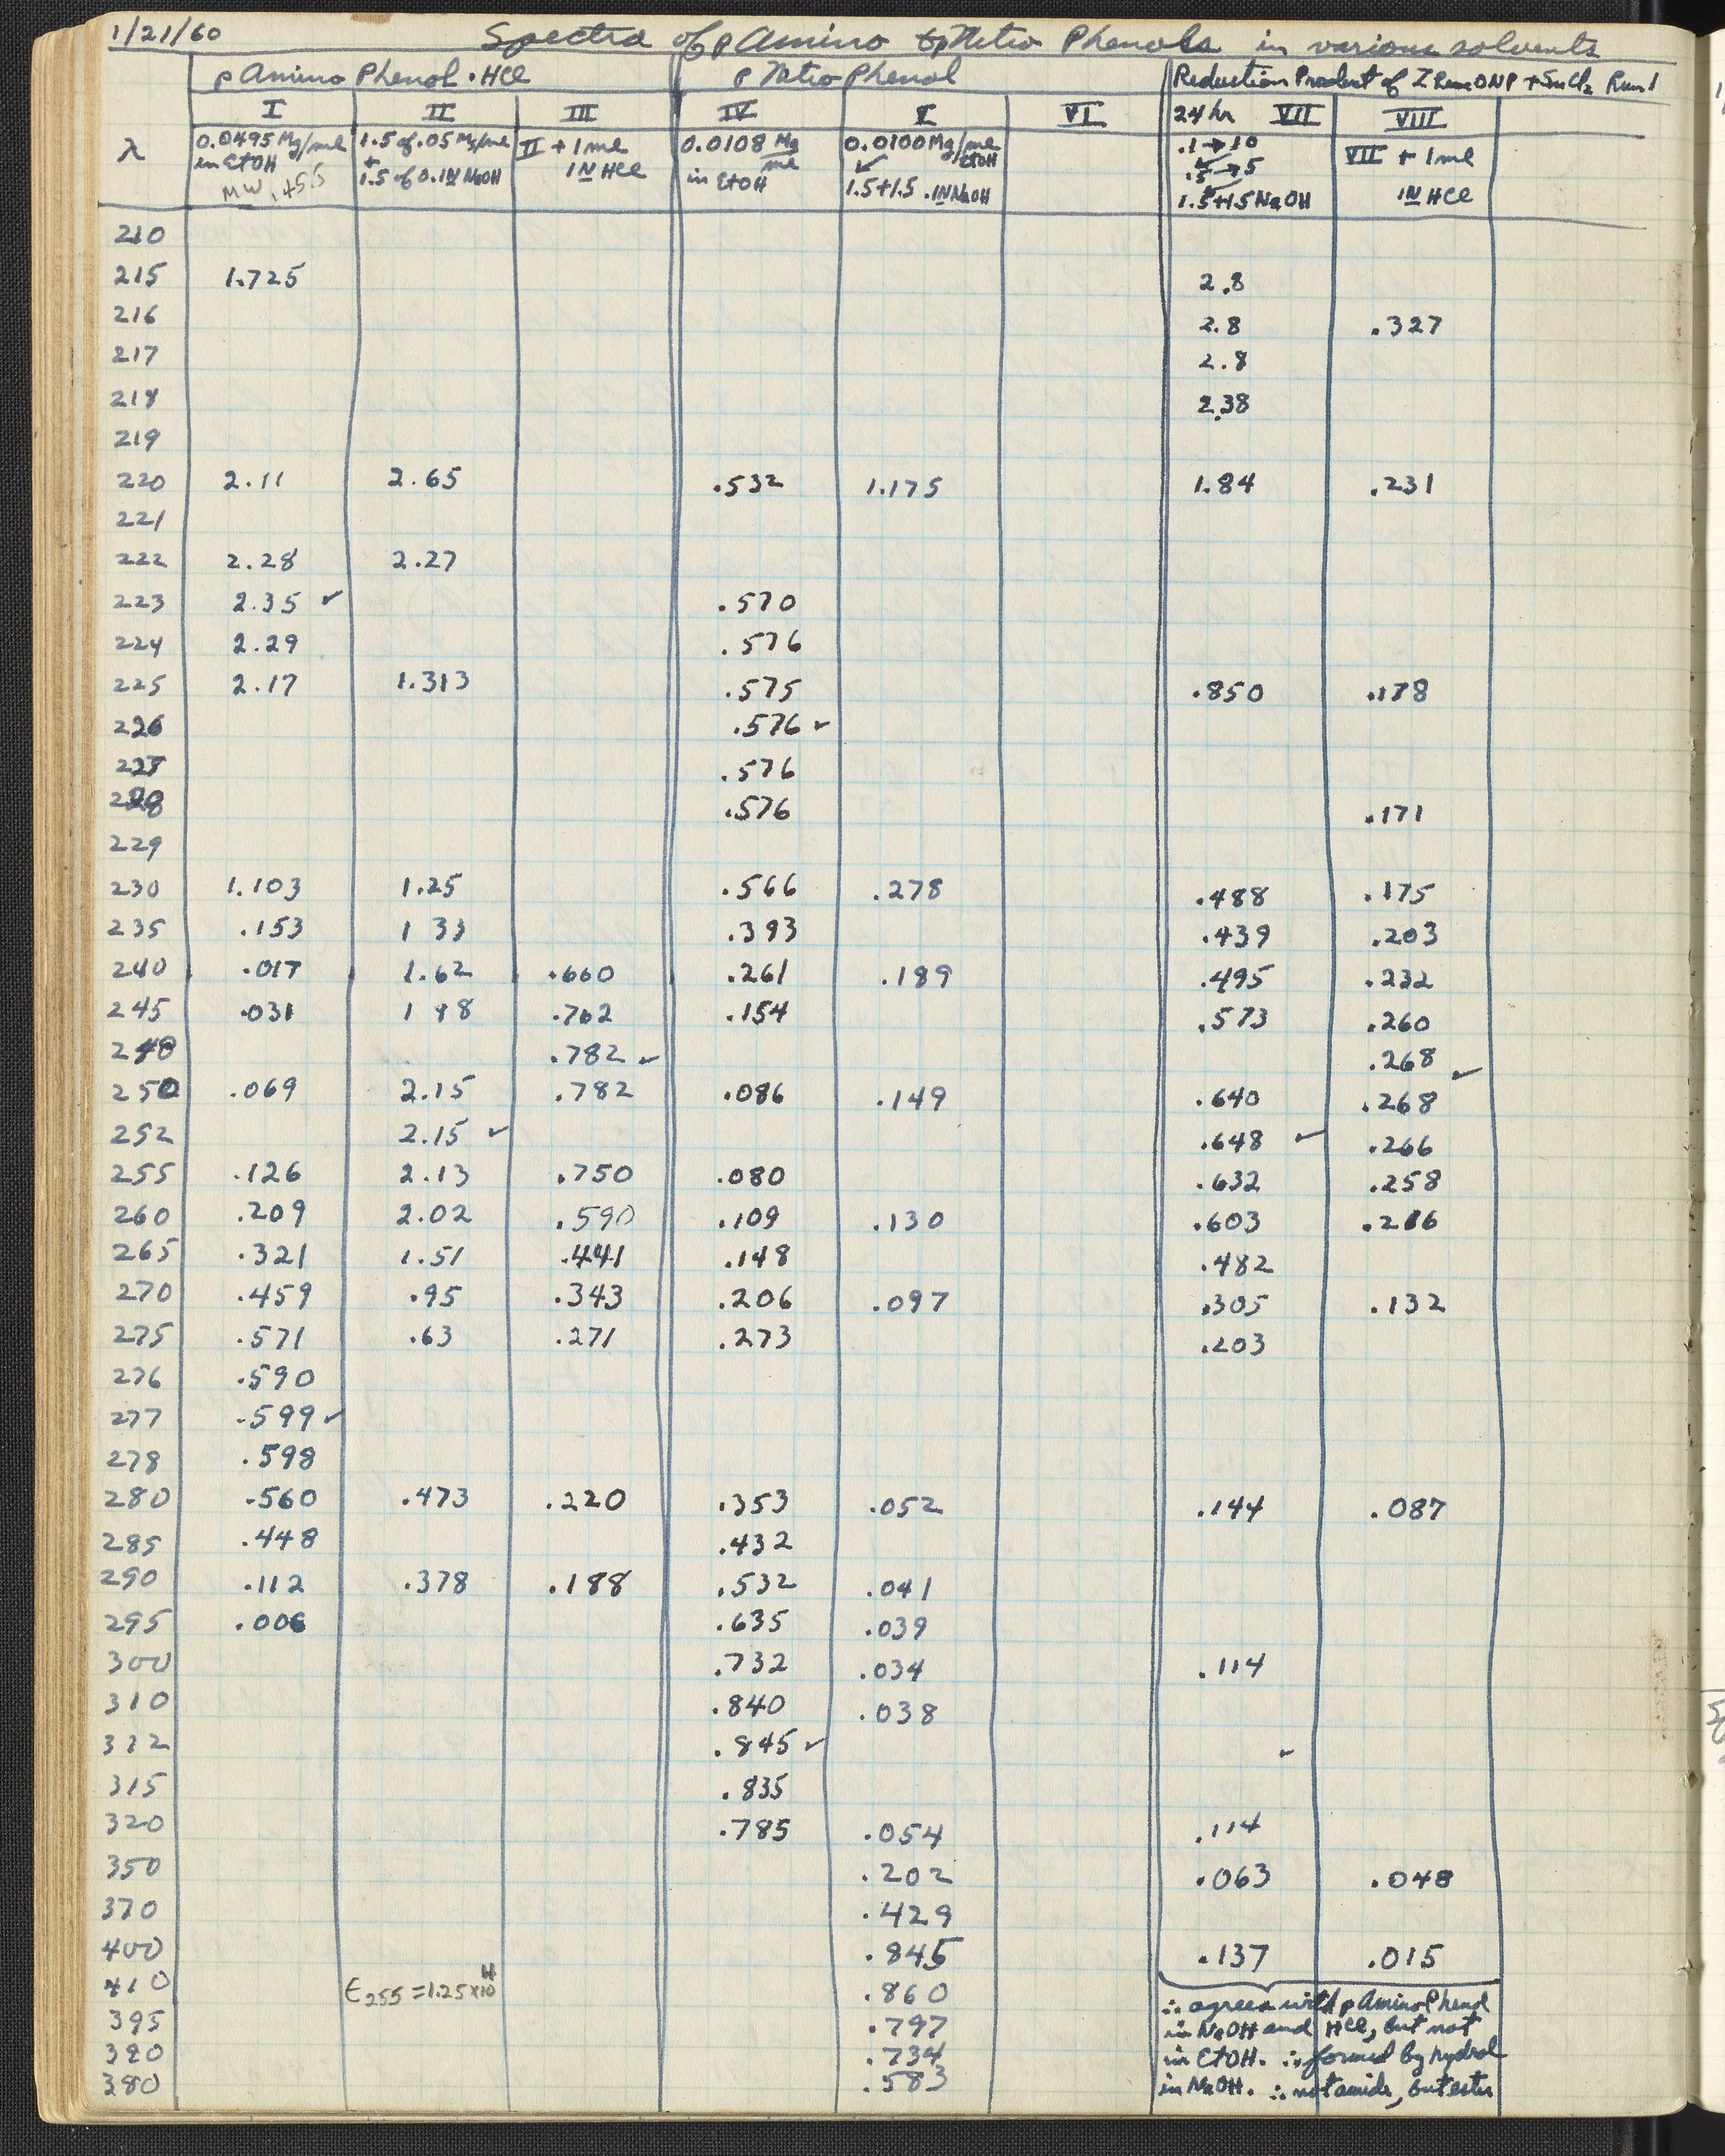 1/21/60 Spectra of p Amino & p Nitro Phenols in various solvents
p Amino Phenol · HCl p Nitro Phenol Reduction Product of Z ONP + SnCl2 Run 1
I II III IV V VI 24 hr VII VIII
λ 0.0495 Mg/ml 1.5 of .05 Mg/ml II + 1 ml 0.0108 Mg/ml 0.0100 Mg/ml EtOH .1 → 10 VIII + 1 ml
in EtOH + 1N HCl in EtOH ↙ .5 → 5 1N HCl
MW 145.5 1.5 of 0.1N NaOH 1.5+1.5 .1N NaOH 1.5+1.5 NaOH
210
215 1.725 2.8
216 2.8 .327
217 2.8
218 2.38
219
220 2.11 2.65 .532 1.175 1.84 .231
221
222 2.28 2.27
223 2.35 ✓ .570
224 2.29 .576
225 2.17 1.313 .575 .850 .178
226 .576 ✓
227 .576
228 .576 .171
229
230 1.103 1.25 .566 .278 .488 .175
235 .153 1 33 .393 .439 .203
240 .017 1.62 .660 .261 .189 .495 .232
245 .031 1 98 .762 .154 .573 .260
248 .782 ✓ .268
250 .069 2.15 .782 .086 .149 .640 .268 ✓
252 2.15 ✓ .648 ✓ .266
255 .126 2.13 .750 .080 .632 .258
260 .209 2.02 .590 .109 .130 .603 .216
265 .321 1.51 .441 .148 .482
270 .459 .95 .343 .206 .097 .305 .132
275 .571 .63 .271 .273 .203
276 .590
277 .599 ✓
278 .598
280 .560 .473 .220 .353 .052 .144 .087
285 .448 .432
290 .112 .378 .188 .532 .041
295 .006 .635 .039
300 .732 .034 .114
310 .840 .038
312 .845 ✓ ✓
315 .835
320 .785 .054 .114
350 .202 .063 .048
370 .429
400 .845 .137 .015
410 ε255 = 1.25 x 10^4 .860
395 .797
390 .734
380 .583
∴ agrees with p Amino Phenol
in NaOH and HCl, but not
in EtOH. ∴ formed by hydrol
in NaOH. ∴ not amide, but ester